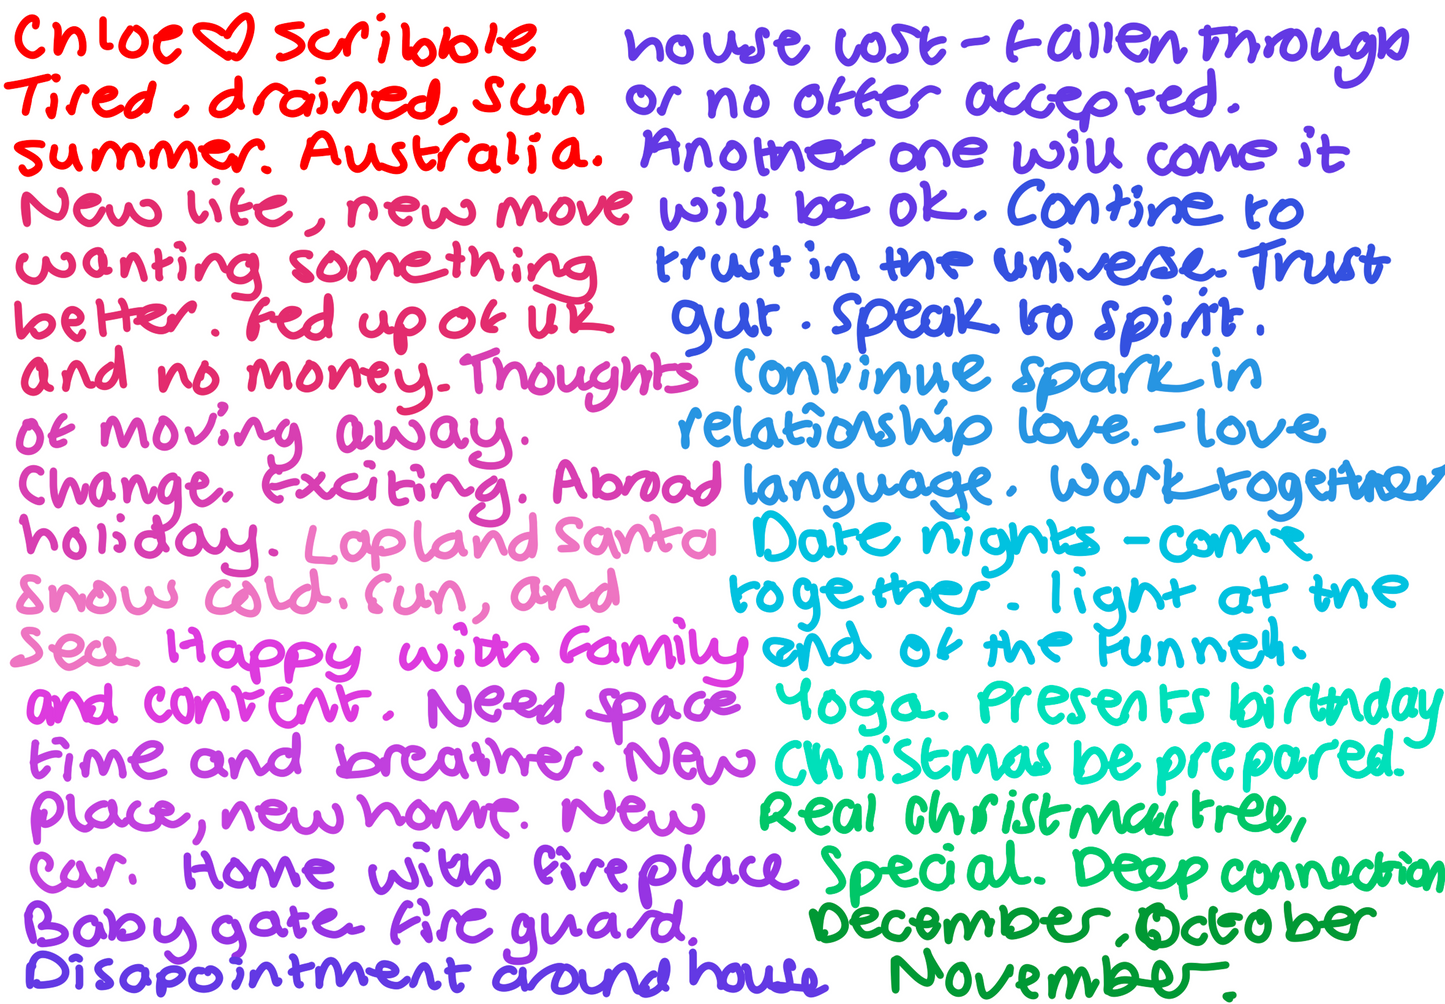 Chloe♡ Scribble
Tired, drained, sun
summer. Australia.
New life, new move
wanting something
better. Fed up of UK
and no money. Thoughts
of moving away.
Change. Exciting. Abroad
holiday. Lapland Santa
snow cold. Sun, and
Sea Happy with family
and content. Need space
time and breather. New
place, new home. New
car. Home with fireplace
Baby gate fire guard.
Disapointment around house
house lost - fallen through
or no offer accepted.
Another one will come it
will be ok. Contine to
trust in the universe. Trust
gut. Speak to spirit.
Continue spark in
relationship love. - love
language. Work together
Date nights - come
together. light at the
end of the tunnell.
Yoga. Presents birthday
Christmas be prepared.
Real christmas tree,
Special. Deep connection
December, October
November.